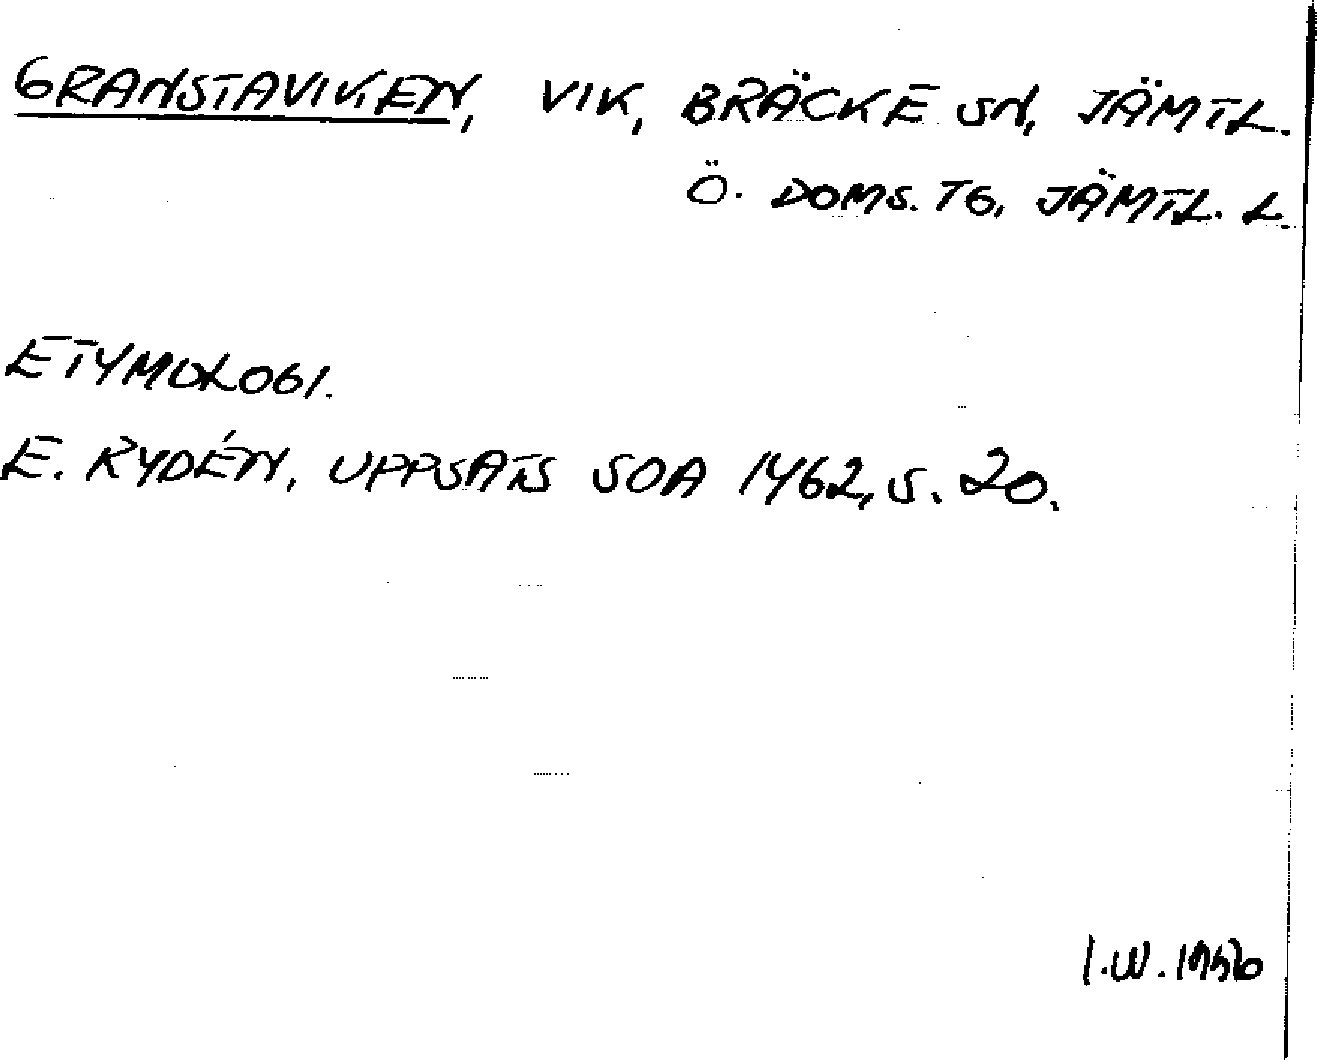 GRANSTAVIKEN, VIK, BRÄCKE SN, JÄMTL.
Ö. DOMS. TG, JÄMTL. L.
ETYMOLOGI.
E. RYDÉN, UPPSATS SOA 1462, S. 20.
I.W.